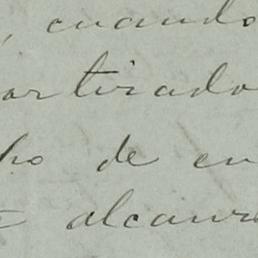 , cuando
artirado
ho de en
alcanz